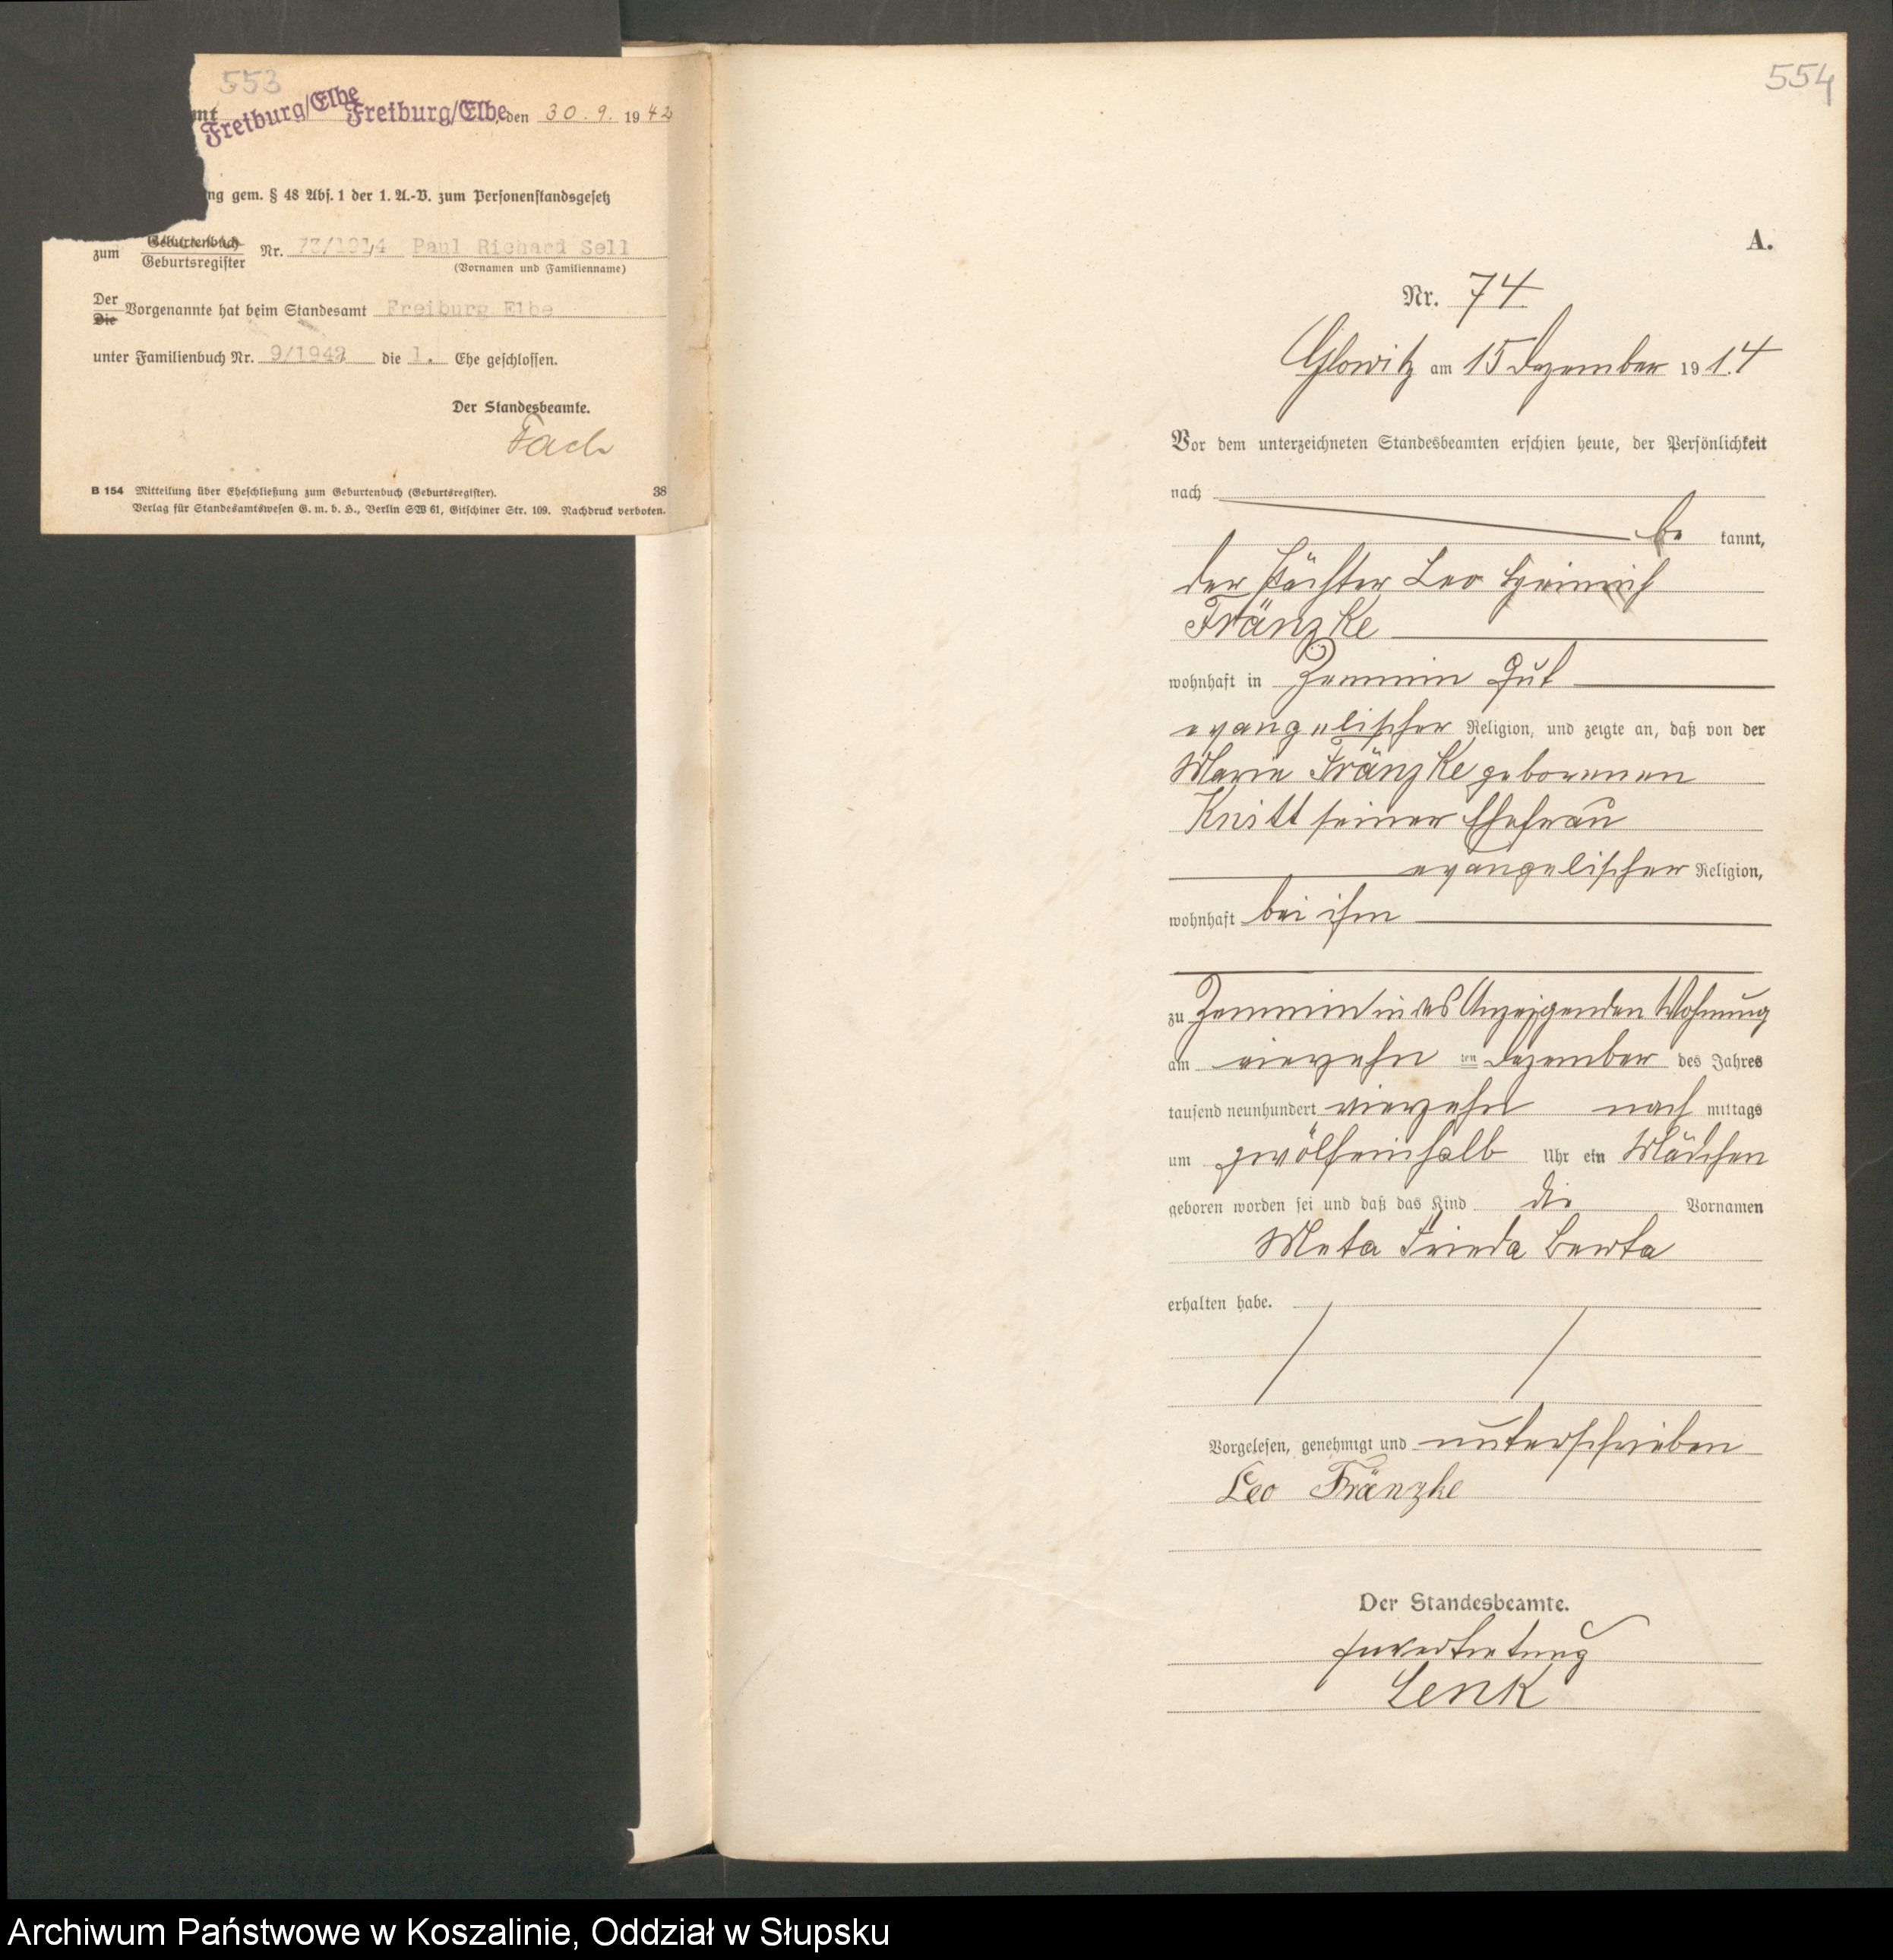 553
mt Freiburg/Elbe Freiburg/Elbe, den 30. 9. 1942
ng gem. § 48 Abs. 1 der 1. A.-V. zum Personenstandsgesetz
zum Geburtenbuch Geburtsregister Nr. 73/1914 Paul Richard Sell
(Vornamen und Familienname)
Der Die Vorgenannte hat beim Standesamt Freiburg Elbe
unter Familienbuch Nr. 9/1942 die 1. Ehe geschlossen.
Der Standesbeamte.
B 154 Mitteilung über Eheschließung zum Geburtenbuch (Geburtsregister). 38
Verlag für Standesamtswesen G. m. b. H., Berlin SW 61, Gitschiner Str. 109. Nachdruck verboten.
554
A.
Nr. 74
Glowitz am 15 Dezember 1914
Vor dem unterzeichneten Standesbeamten erschien heute, der Persönlichkeit
nach
be kannt,
der Pächter Leo Heinrich
Fränzke
wohnhaft in Zemmin Gut
evangelischer Religion, und zeigte an, daß von der
Marie Fränzke geborenen
Knitt seiner Ehefrau
evangelischer Religion,
wohnhaft bei ihm
zu Zemmin in des Anzeigenden Wohnung
am vierzehn ten Dezember des Jahres
tausend neunhundert vierzehn nach mittags
um zwölfeinhalb Uhr ein Mädchen
geboren worden sei und daß das Kind die Vornamen
Meta Frieda Berta
erhalten habe.
Vorgelesen, genehmigt und unterschrieben
Leo Fränzke
Der Standesbeamte.
In Vertretung
Lenk
Archiwum Państwowe w Koszalinie, Oddział w Słupsku